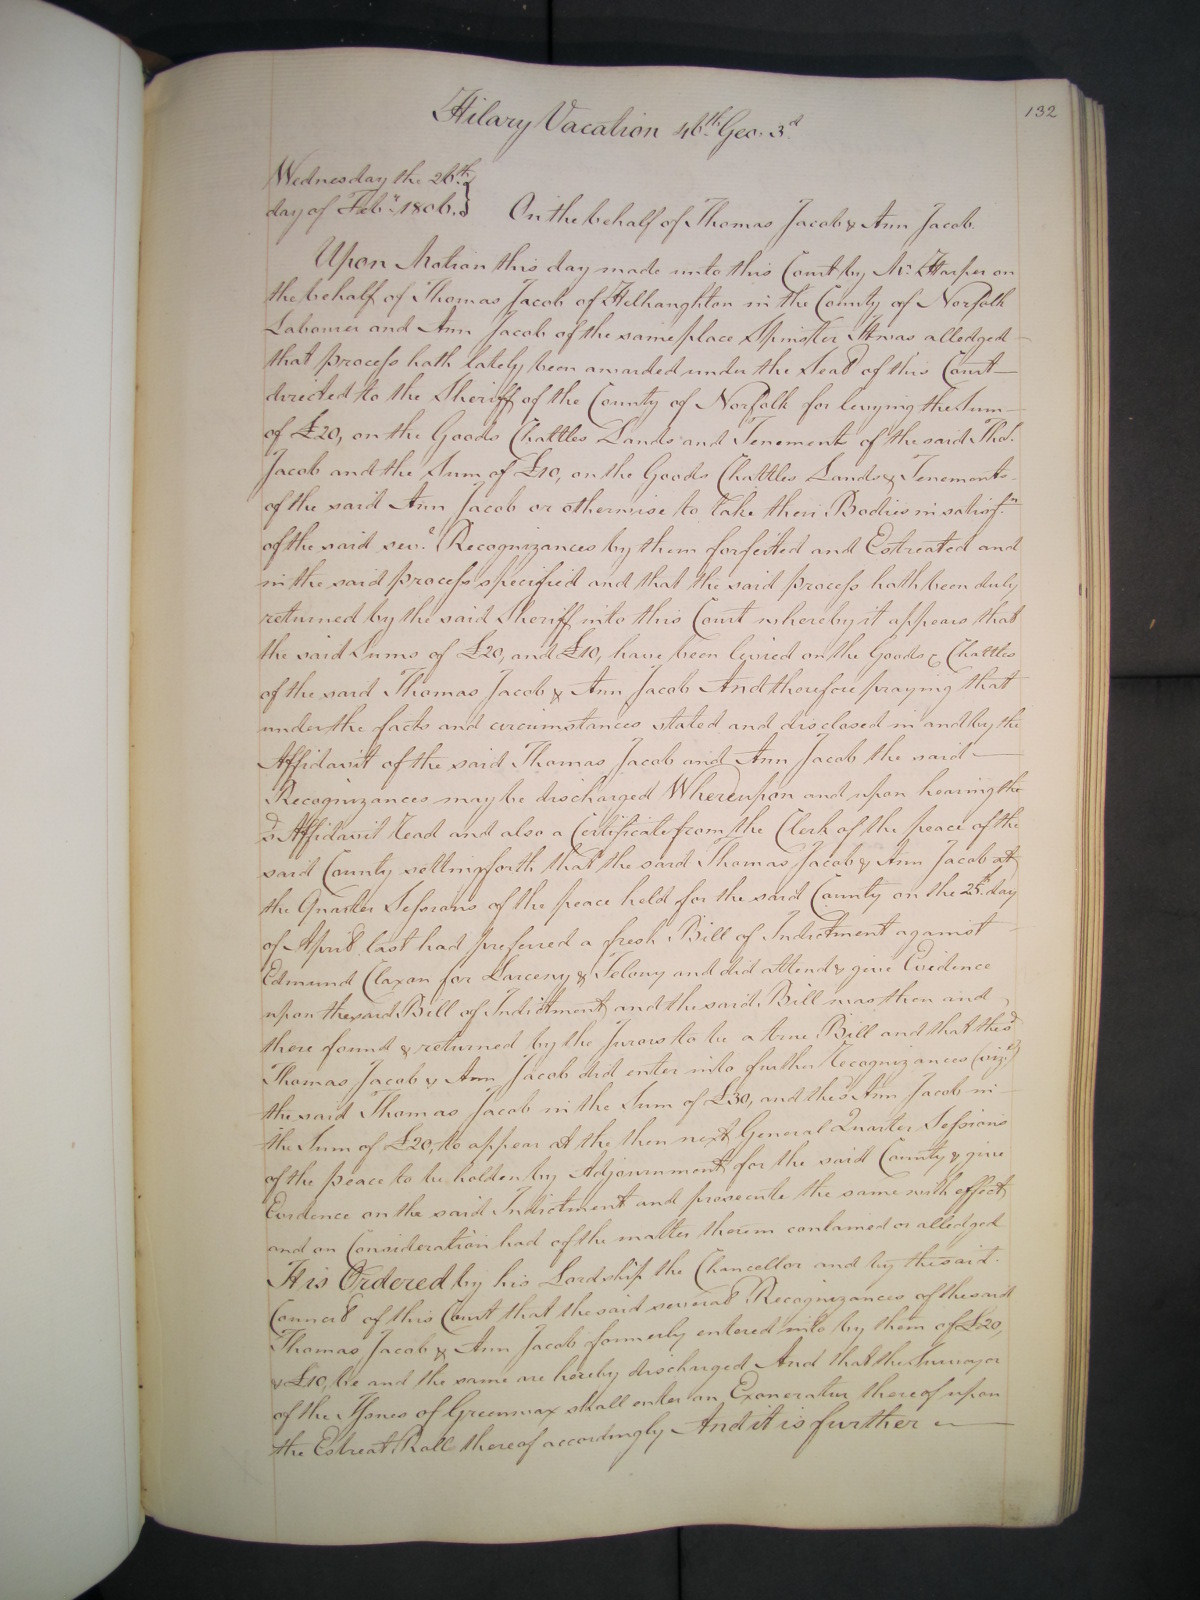 132
Hilary Vacation 46th Geo. 3d
Wednesday the 26th
day of Feby 1806.
On the behalf of Thomas Jacob & Ann Jacob.
Upon Motion this day made unto this Court by Mr Harper on
the behalf of Thomas Jacob of Helhaughton in the County of Norfolk
Labourer and Ann Jacob of the same place Spinster It was alledged
that process hath lately been awarded under the Seal of this Court
directed to the Sheriff of the County of Norfolk for levying the Sum
of £20, on the Goods Chattles Lands and Tenements of the said Thos.
Jacob and the Sum of £10, on the Goods Chattles Lands & Tenements
of the said Ann Jacob or otherwise to take their Bodies in satisfn
of the said sevl Recognizances by them forfeited and Estreated and
in the said process specified and that the said process hath been duly
returned by the said Sheriff into this Court whereby it appears that
the said Sums of £20, and £10, have been levied on the Goods & Chattles
of the said Thomas Jacob & Ann Jacob And therefore praying that
under the facts and circumstances stated and disclosed in and by the
Affidavit of the said Thomas Jacob and Ann Jacob the said
Recognizances may be discharged Whereupon and upon hearing the
sd Affidavit read and also a Certificate from the Clerk of the peace of the
said County setting forth that the said Thomas Jacob & Ann Jacob at
the Quarter Sessions of the peace held for the said County on the 25th day
of April last had preferred a fresh Bill of Indictment against
Edmund Claxon for Larceny & Felony and did attend & give Evidence
upon the said Bill of Indictment and the said Bill was then and
there found & returned by the Jurors to be a true Bill and that the sd
Thomas Jacob & Ann Jacob did enter into further Recognizances (vizt)
the said Thomas Jacob in the Sum of £30, and the sd Ann Jacob in
the Sum of £20, to appear at the then next General Quarter Sessions
of the peace to be holden by Adjournment for the said County & give
Evidence on the said Indictment and prosecute the same with effect
and on Consideration had of the matter therein contained or alledged
It is Ordered by his Lordship the Chancellor and by the said
Council of this Court that the said several Recognizances of the said
Thomas Jacob & Ann Jacob formerly entered into by them of £20,
& £10, be and the same are hereby discharged And that the Surveyor
of the Issues of Greenwax shall enter an Exoneratur thereof upon
the Estreat Roll thereof accordingly And it is further